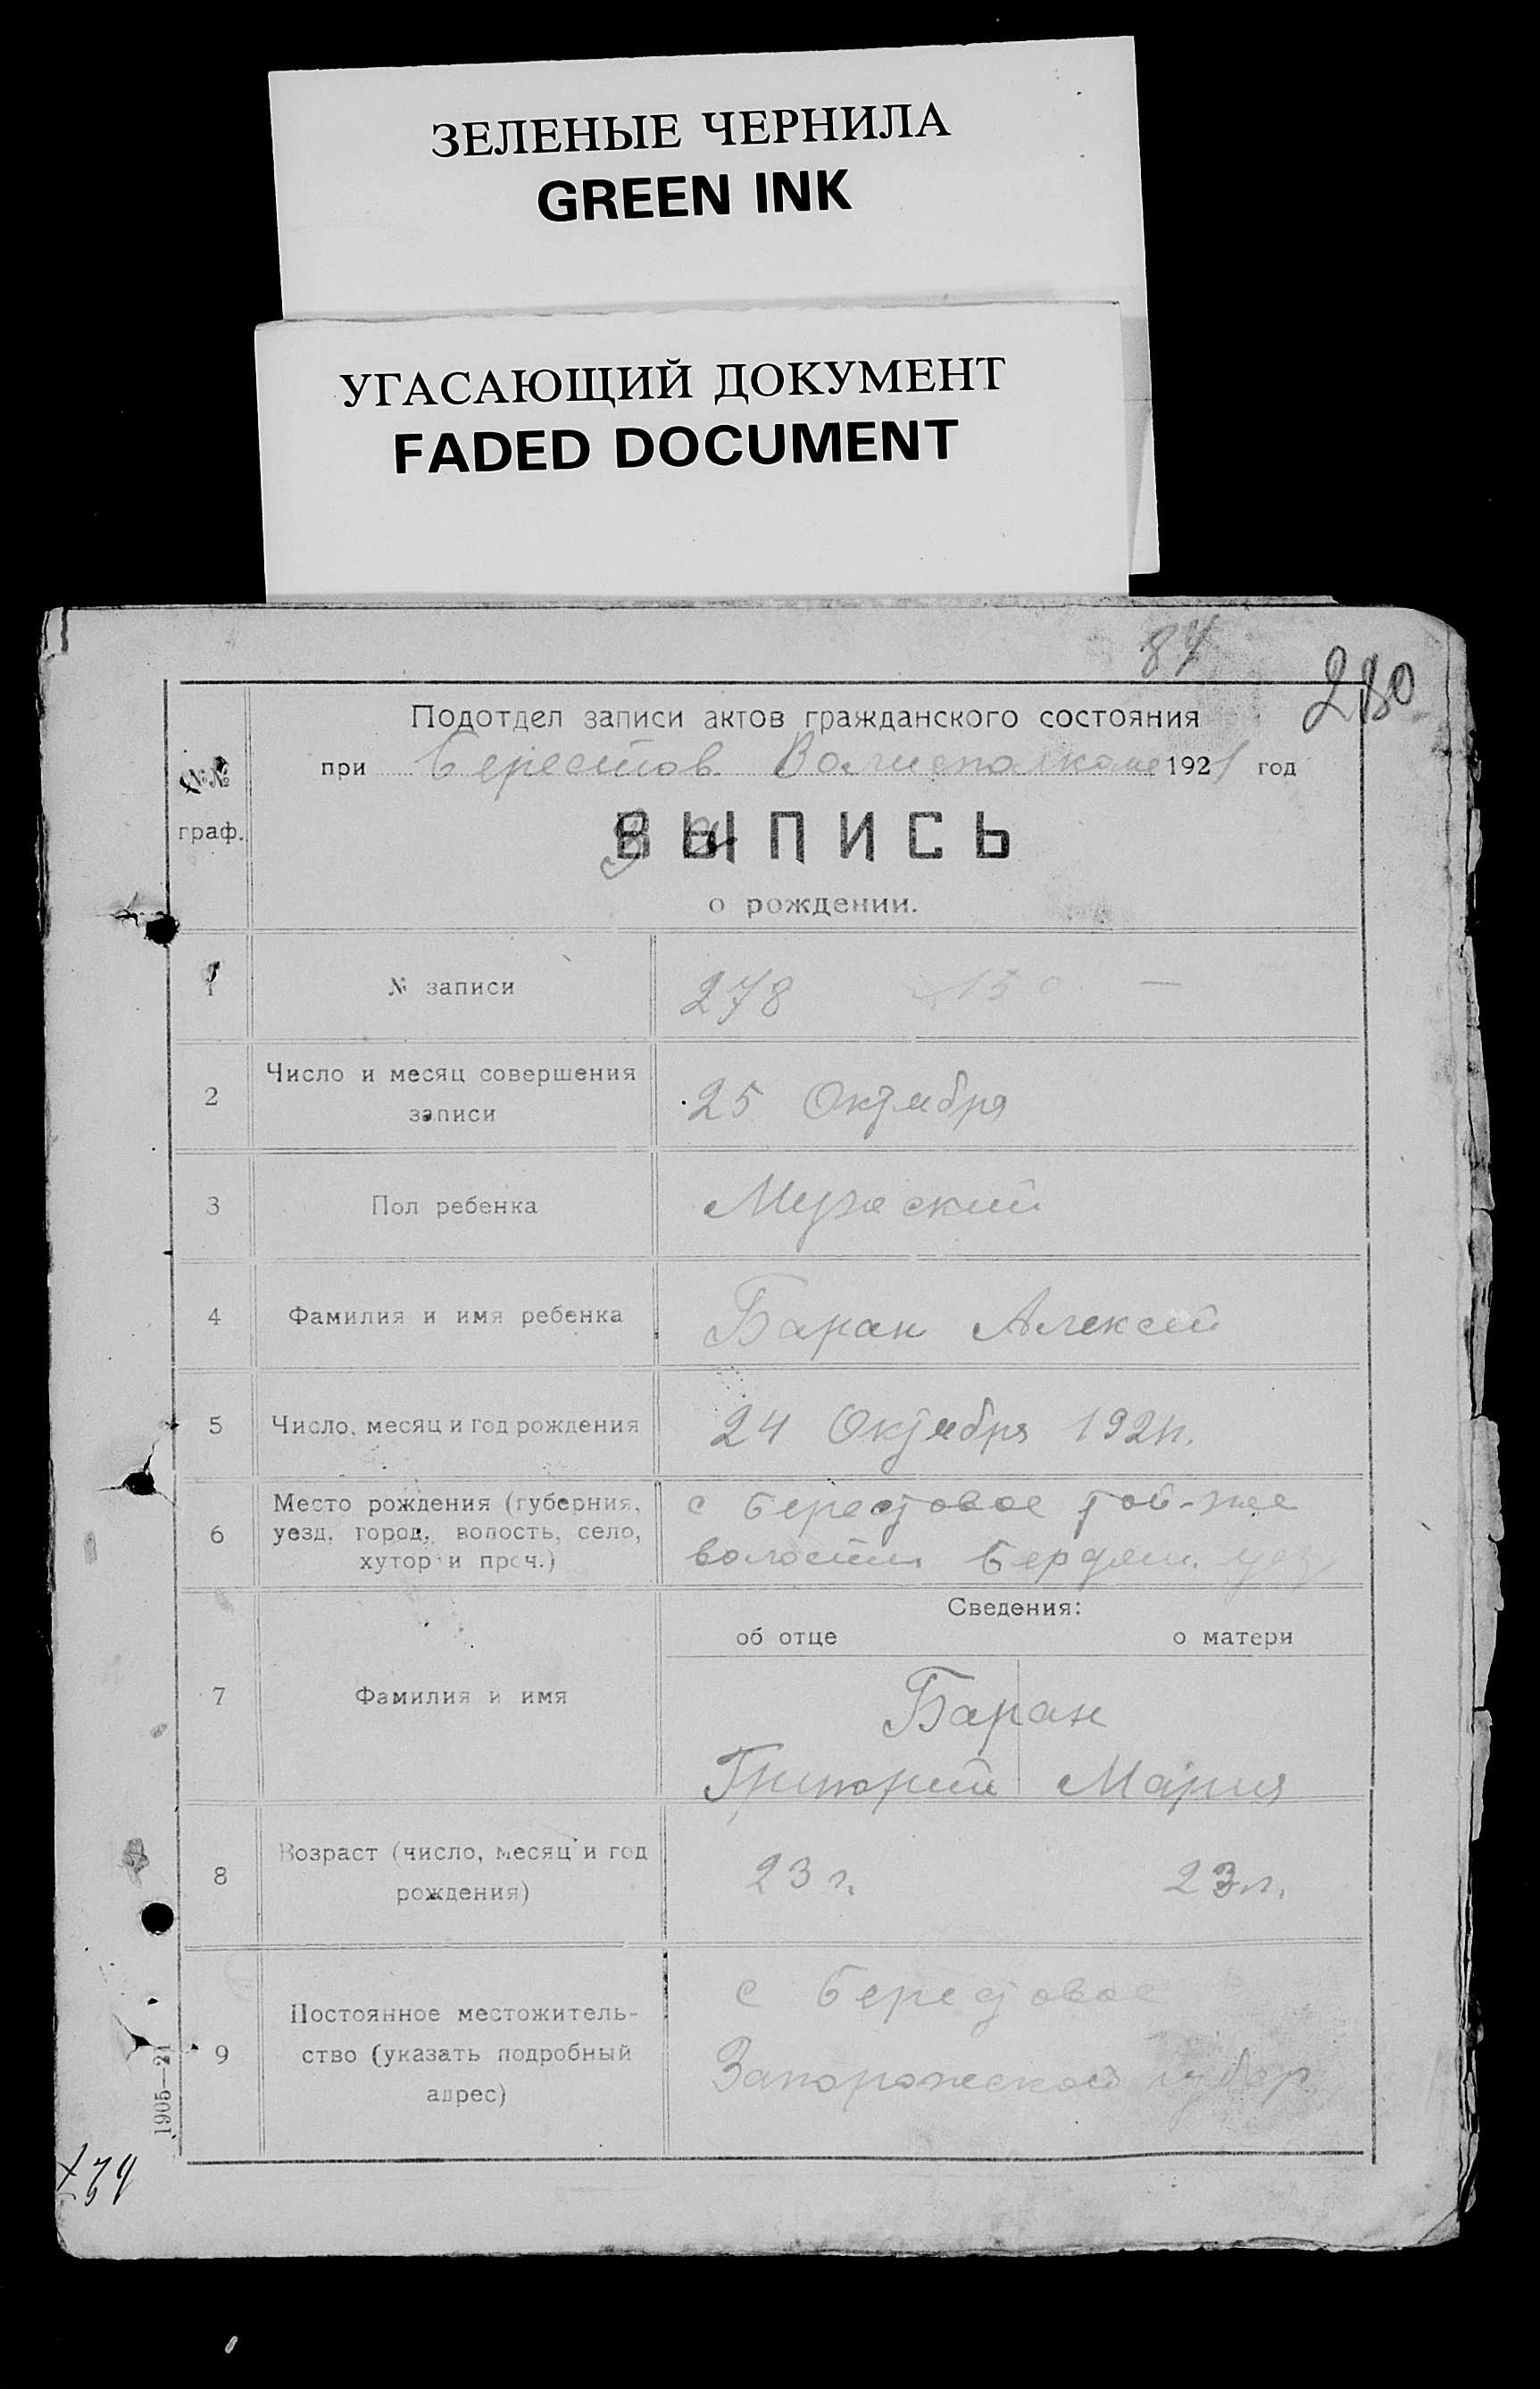 ЗЕЛЕНЫЕ ЧЕРНИЛА
GREEN INK
УГАСАЮЩИЙ ДОКУМЕНТ
FADED DOCUMENT
84
280
Подотдел записи актов гражданского состояния
при Берестов. Волисполкоме 1921 год
№№
граф.
ВЫПИСЬ
о рождении.
1 № записи 278 150 —
2 Число и месяц совершения
записи
25 Октября
3 Пол ребенка Мужеский
4 Фамилия и имя ребенка Баран Алексей
5 Число, месяц и год рождения 24 Октября 1921г.
6 Место рождения (губерния,
уезд, город, волость, село,
хутор и проч.)
с Берестовое той-же
волости Бердян. уез
Сведения:
об отце о матери
7 Фамилия и имя
Баран
Григорий Мария
8 Возраст (число, месяц и год
рождения)
23 г. 23 г.
9 Постоянное местожитель-
ство (указать подробный
адрес)
с Берестовое
Запорожской губер
1905—21